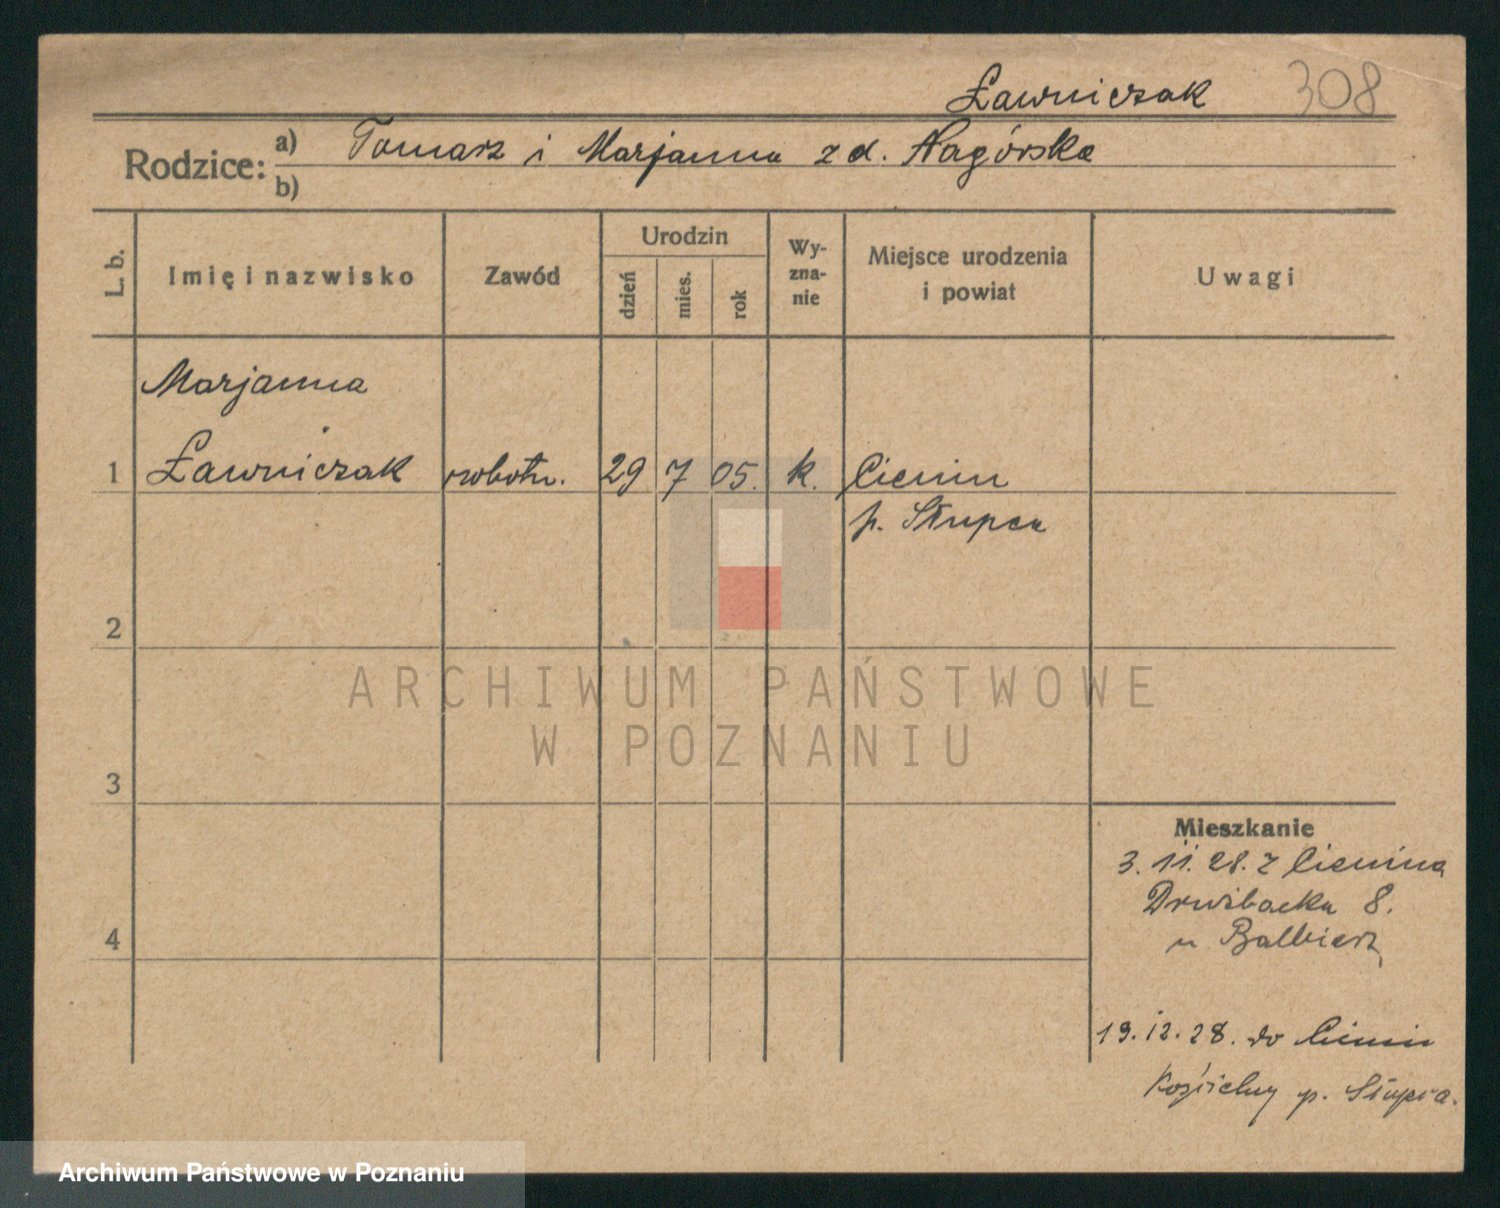 Ławniczak 308
Rodzice: a) Tomasz i Marjanna z d. Nagórska
b)
L. b.
Imię i nazwisko
Zawód
Urodzin
dzień
mies.
rok
Wy-
zna-
nie
Miejsce urodzenia
i powiat
Uwagi
Marjanna
1 Ławniczak robotn. 29 7 05. k. Cienin
p. Słupca
2
3
4
Mieszkanie
3. 11. 28. z Cienina
Drużbacka 8.
u Balbierz
19. 12. 28. do Cienin
Kościelny p. Słupca.
ARCHIWUM PAŃSTWOWE
W POZNANIU
Archiwum Państwowe w Poznaniu